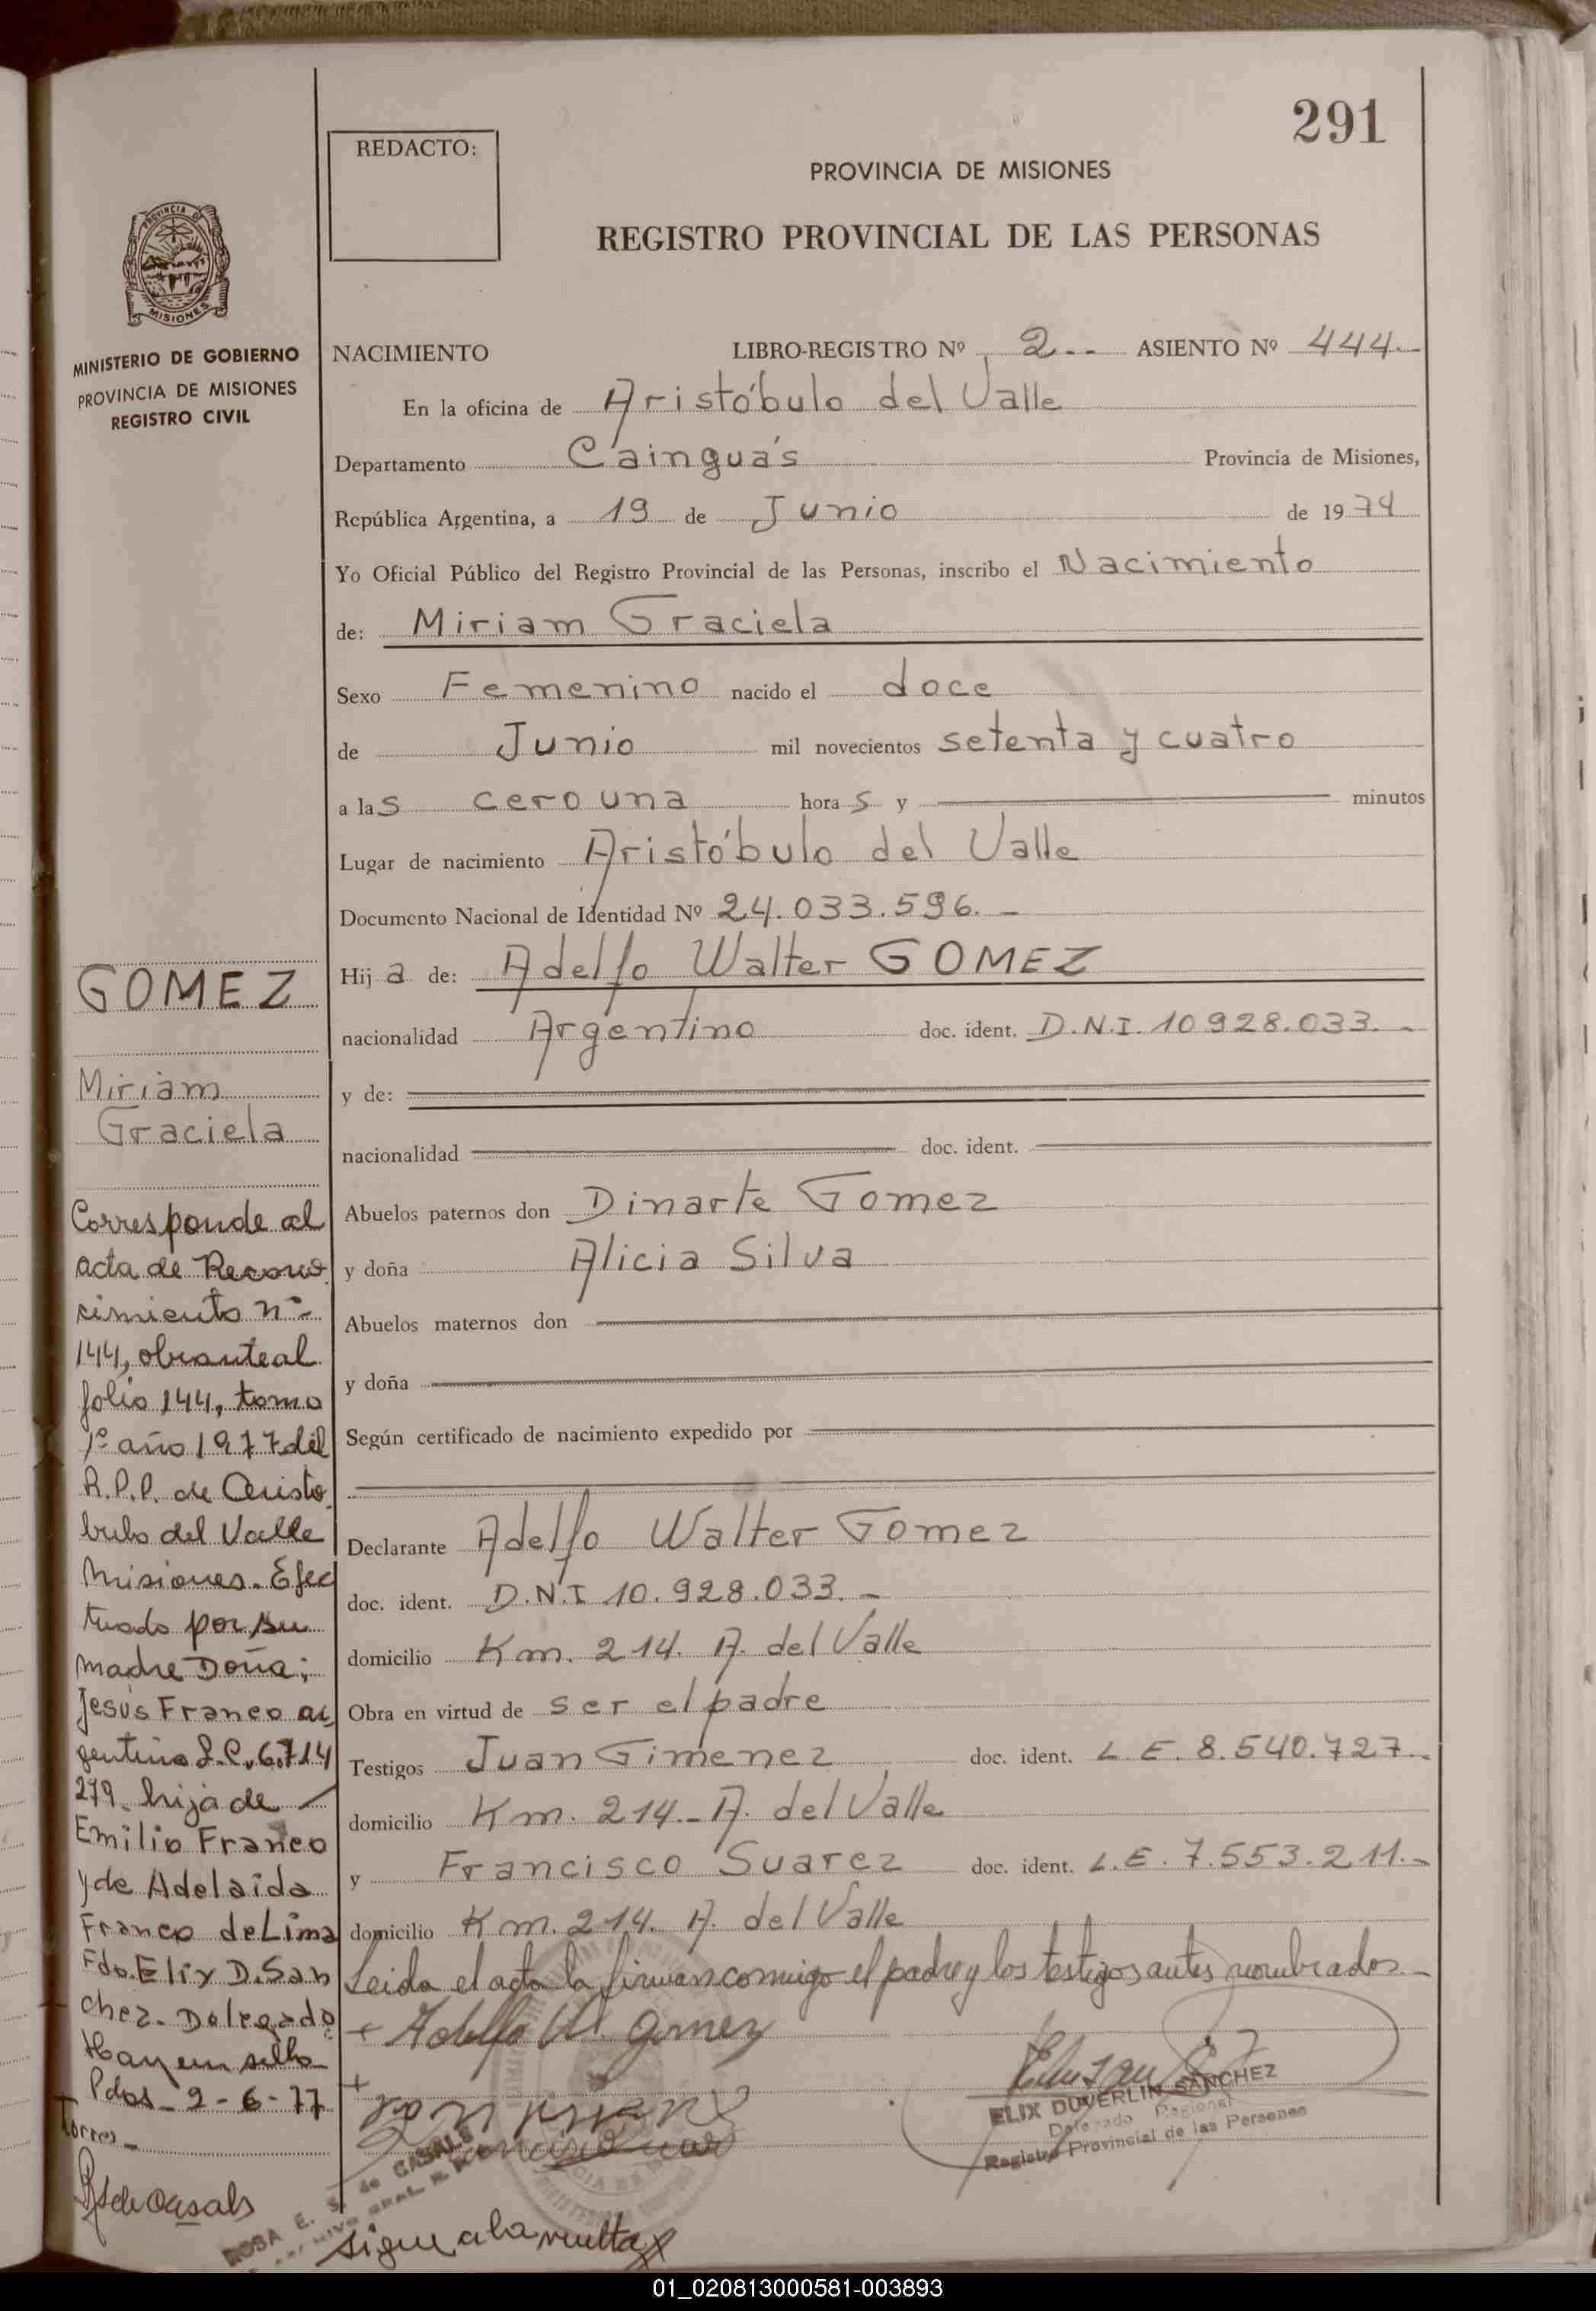 291
REDACTO:
PROVINCIA DE MISIONES
REGISTRO PROVINCIAL DE LAS PERSONAS
PROVINCIA DE
MISIONES
MINISTERIO DE GOBIERNO
PROVINCIA DE MISIONES
REGISTRO CIVIL
NACIMIENTO LIBRO-REGISTRO Nº 2-- ASIENTO Nº 444.-
En la oficina de Aristóbulo del Valle
Departamento Cainguás Provincia de Misiones,
República Argentina, a 19 de Junio de 1974
Yo Oficial Público del Registro Provincial de las Personas, inscribo el Nacimiento
de: Miriam Graciela
Sexo Femenino nacido el doce
de Junio mil novecientos setenta y cuatro
a las cero una horas y minutos
Lugar de nacimiento Aristóbulo del Valle
Documento Nacional de Identidad Nº 24.033.596.-
Hija de: Adelfo Walter GOMEZ
nacionalidad Argentino doc. ident. D.N.I. 10928.033.-
y de:
nacionalidad doc. ident.
Abuelos paternos don Dinarte Gomez
y doña Alicia Silva
Abuelos maternos don
y doña
Según certificado de nacimiento expedido por
Declarante Adelfo Walter Gomez
doc. ident. D.N.I 10.928.033.-
domicilio Km. 214. A. del Valle
Obra en virtud de ser el padre
Testigos Juan Gimenez doc. ident. L.E. 8.540.727.-
domicilio Km. 214.- A. del Valle
y Francisco Suarez doc. ident. L.E. 7.553.211.-
domicilio Km. 214. A. del Valle
Leida el acta la firman conmigo el padre y los testigos antes nombrados.-
+ Adelfo W. Gomez
+
ELIX DUVERLIN SANCHEZ
Delegado Regional
Registro Provincial de las Personas
GOMEZ
Miriam
Graciela
Corresponde al
acta de Recono
cimiento nº
144, obrante al
folio 144, tomo
1º año 1977 del
R.P.P. de Aristo
bulo del Valle
Misiones. Efec
tuado por su
madre Doña;
Jesús Franco ar
gentina L.C. 6.714
279. hija de
Emilio Franco
y de Adelaida
Franco de Lima
Fdo. Elix D. San
chez. Delegado
Hay un sello
Pdas - 2-6-77
Torres -
ROSA E. S. de CASALS
Sigue a la vuelta
01_020813000581-003893